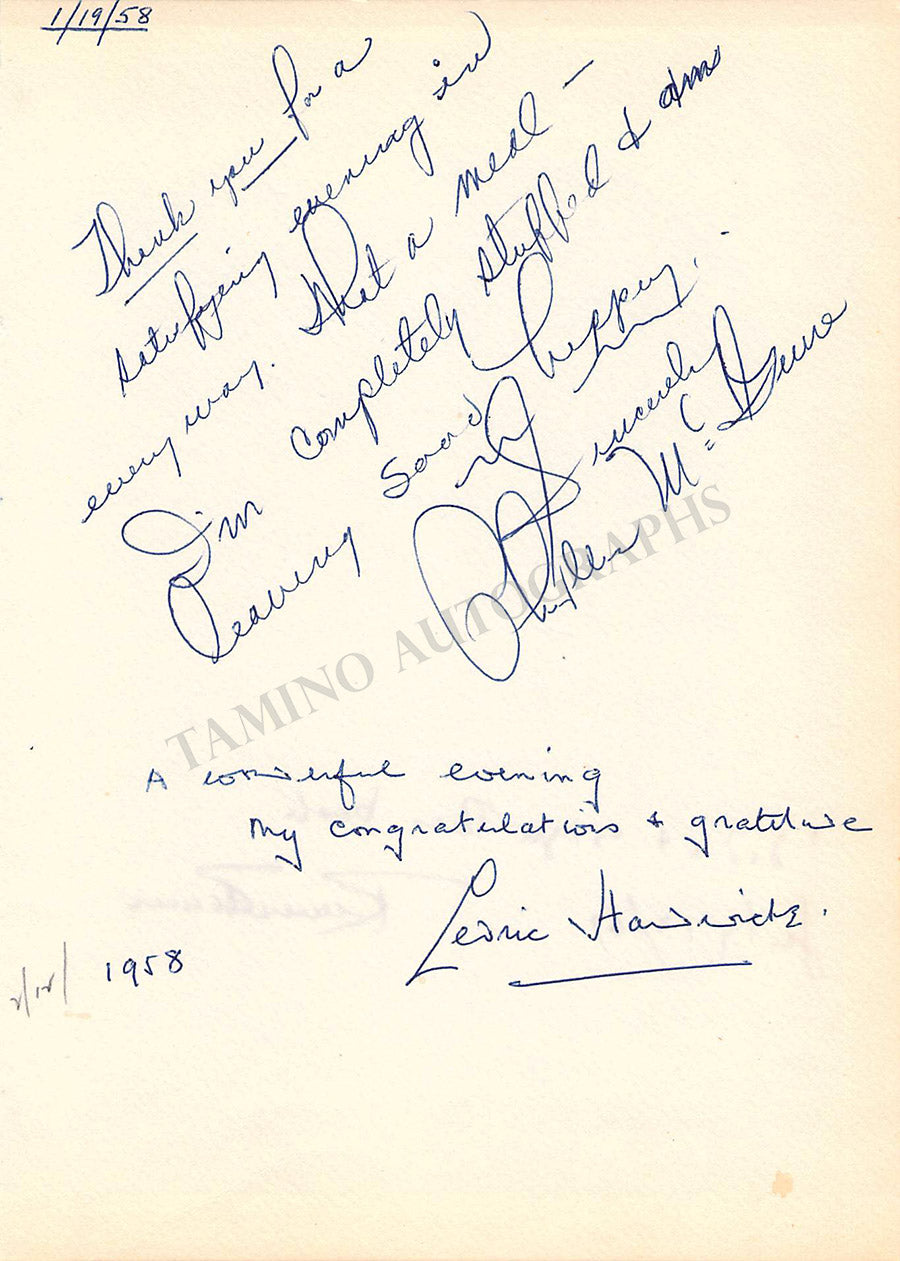 1/19/58
Thank you for a
satisfying evening in
every way. What a meal —
I'm completely stuffed & am
Leaving sooo happy.-
Sincerely
Phyllis McGuire
TAMINO AUTOGRAPHS
A wonderful evening
my congratulations & gratitude
Cedric Hardwicke.
2/12/ 1958